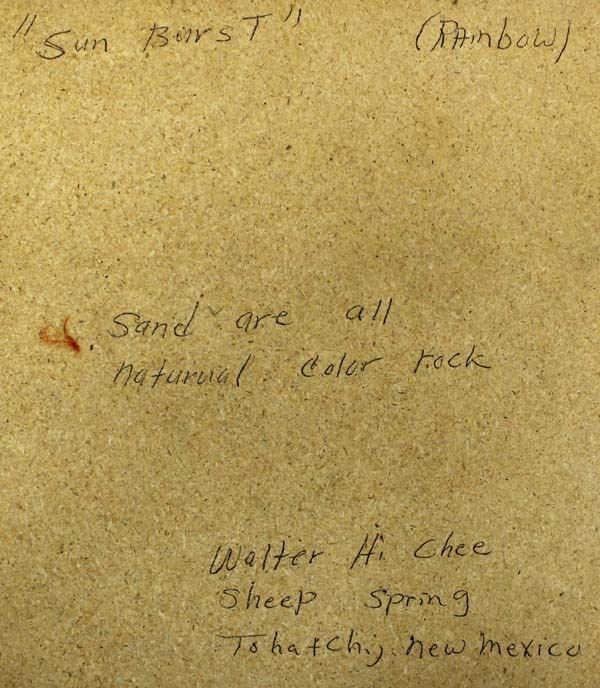 "Sun Burst" (Rainbow)
Sand are all
naturual color rock
Walter H. Chee
Sheep Spring
Tohatchi, new mexico